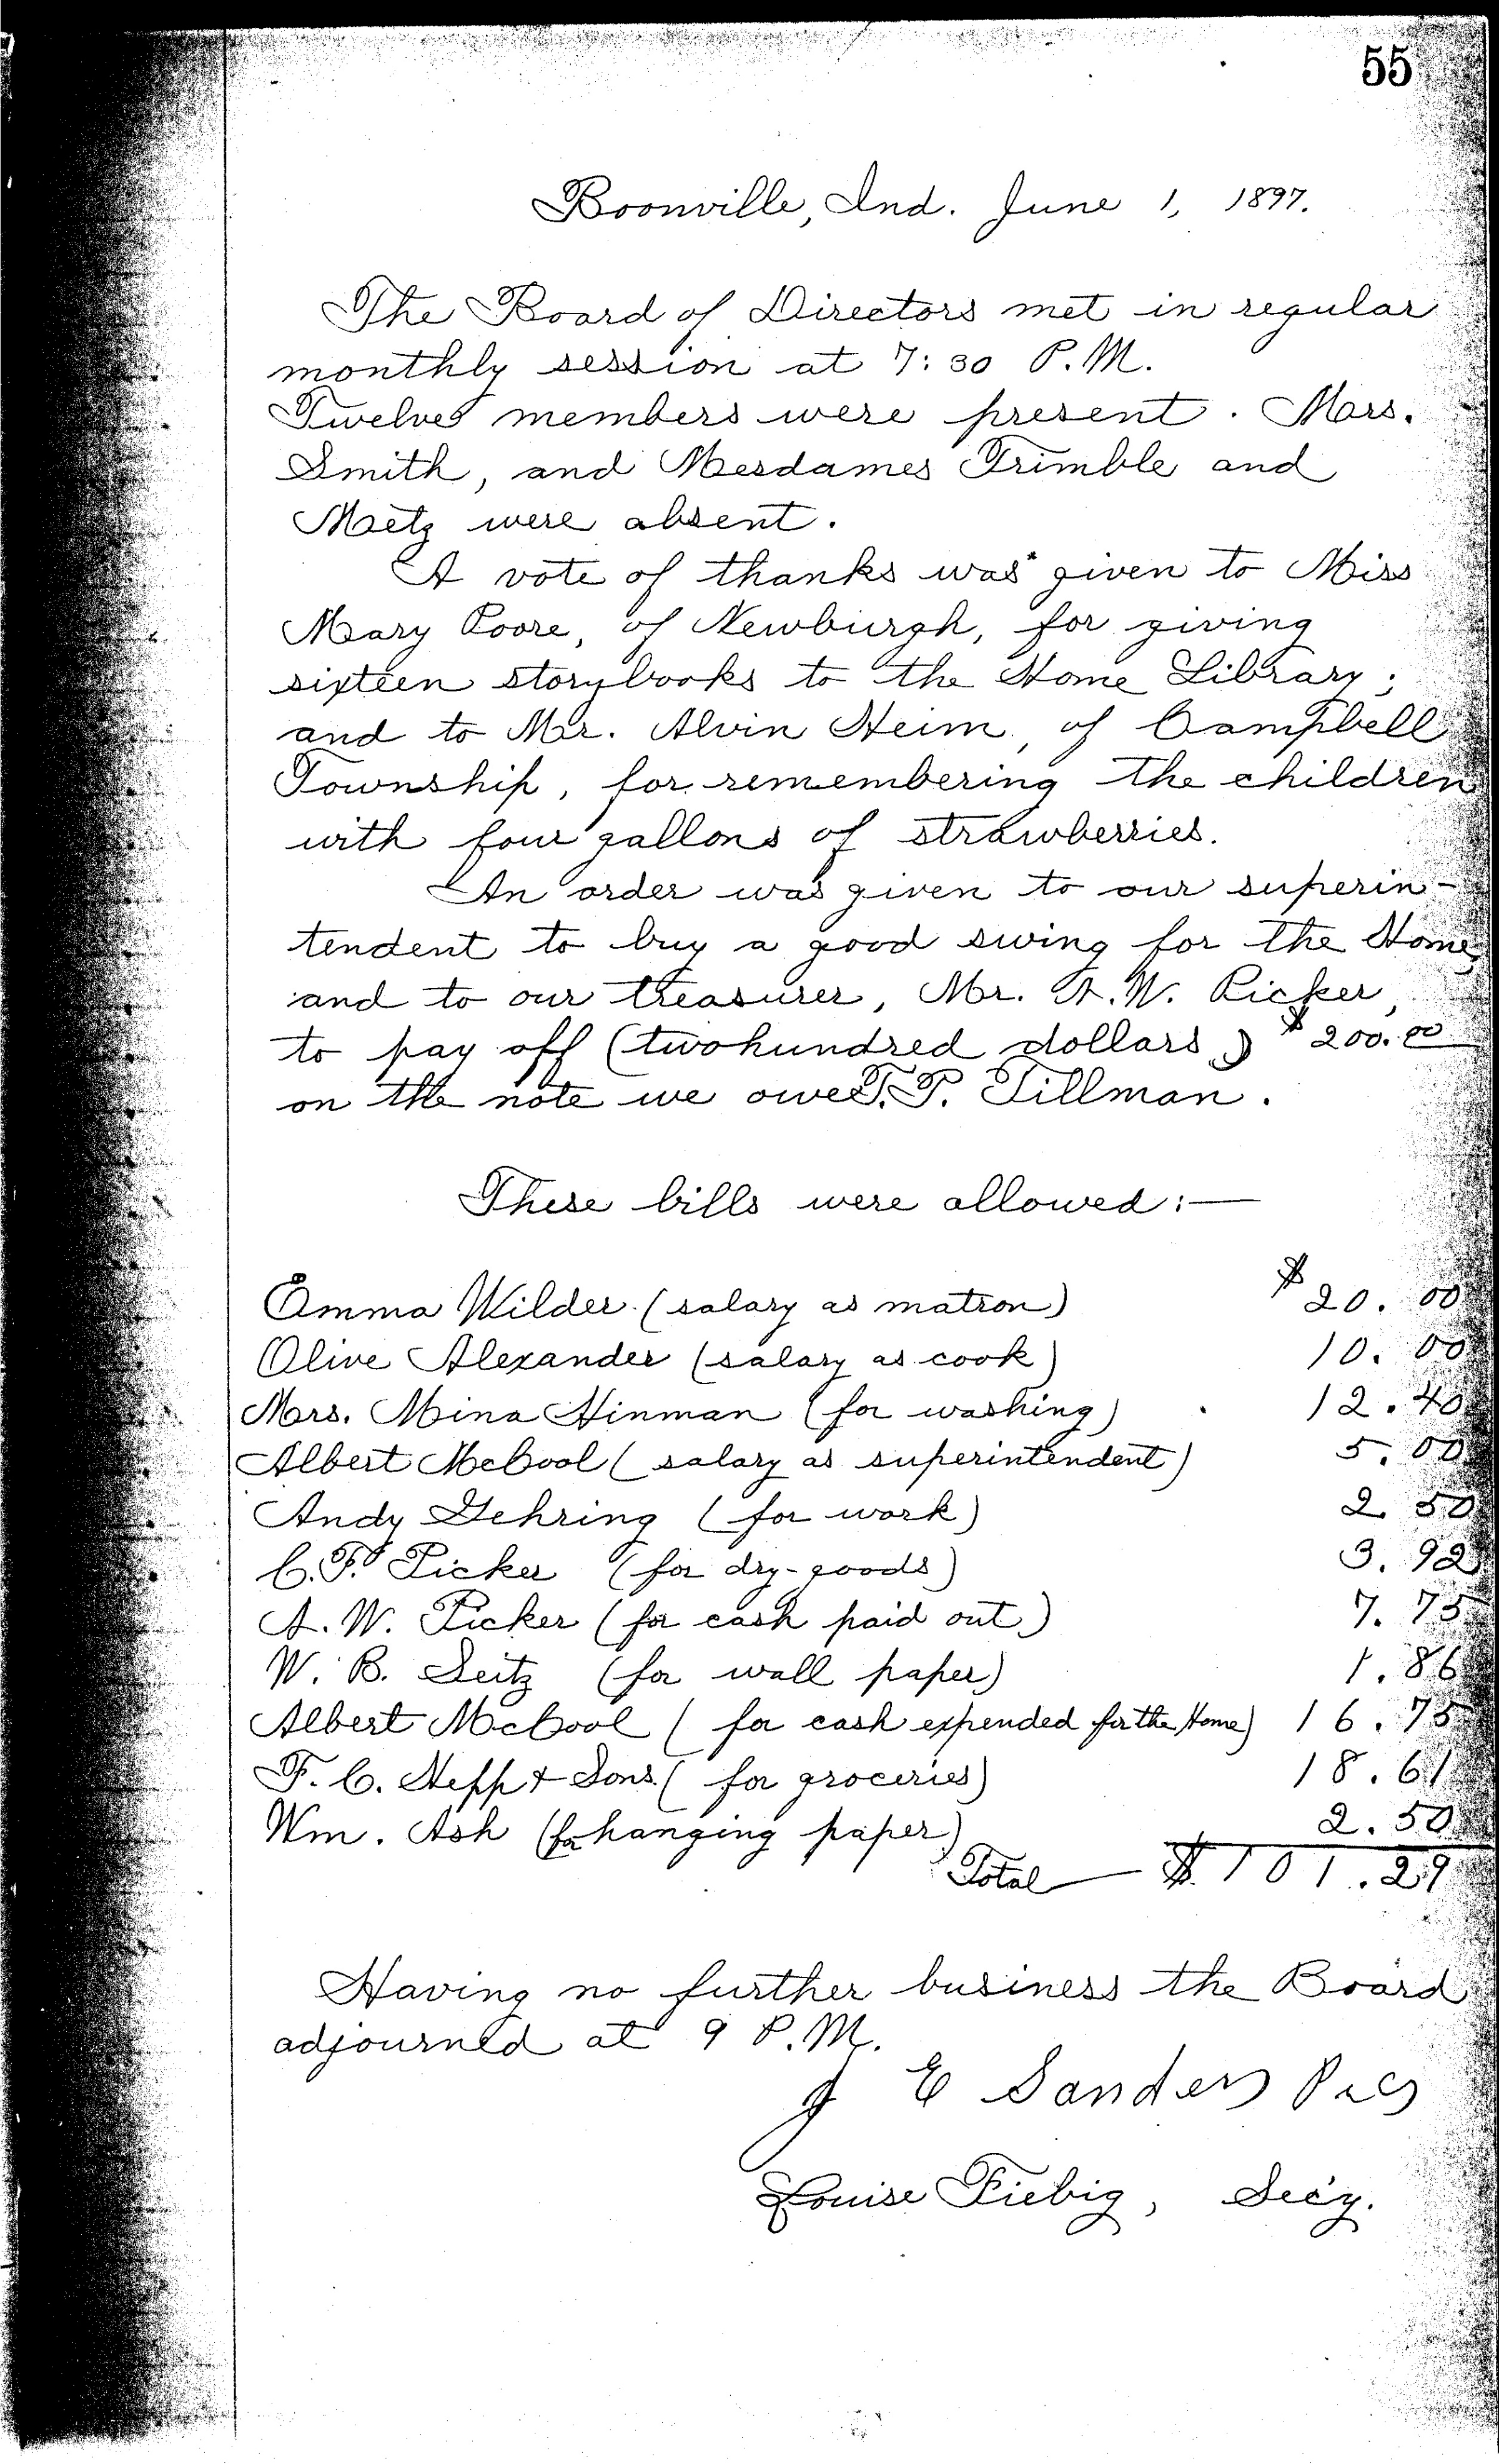 55
Boonville, Ind. June 1, 1897.
The Board of Directors met in regular
monthly session at 7:30 P.M.
Twelve members were present. Mars.
Smith, and Mesdames Trimble and
Metz were absent.
A vote of thanks was given to Miss
Mary Poore, of Newburgh, for giving
sixteen storybooks to the Home Library;
and to Mr. Alvin Heim, of Campbell
Township, for remembering the children
with four gallons of strawberries.
An order was given to our superin-
tendent to buy a good swing for the Home
and to our treasurer, Mr. A. W. Picker,
to pay off (twohundred dollars,) $200.00
on the note we owe T. P. Tillman.
These bills were allowed:—
Emma Wilder (salary as matron) $20.00
Olive Alexander (salary as cook) 10.00
Mrs. Mina Hinman (for washing) 12.40
Albert McCool (salary as superintendent) 5.00
Andy Gehring (for work) 2.50
C. F. Picker (for dry-goods) 3.92
A. W. Picker (for cash paid out) 7.75
W. B. Seitz (for wall paper) 1.86
Albert McCool (for cash expended for the Home) 16.75
F. C. Nepp & Sons (for groceries) 18.61
Wm. Ash (for hanging paper) 2.50
Total — $101.29
Having no further business the Board
adjourned at 9 P.M.
J E Sanders Pres
Louise Fiebig, Sec'y.